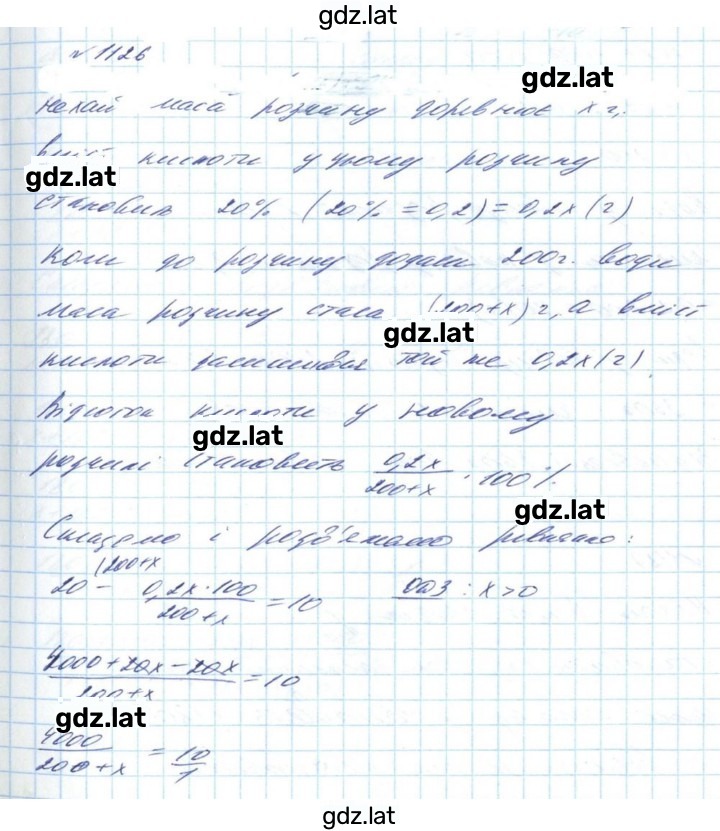 gdz.lat
№ 1126
gdz.lat
Нехай маса розчину дорівнює x г,
вміст кислоти у цьому розчину
gdz.lat
становить 20% (20% = 0,2) = 0,2x (г)
Коли до розчину додали 200г. води
маса розчину стала (200+x) г, а вміст
gdz.lat
кислоти залишився той же 0,2x (г).
Відсоток кислоти у новому
gdz.lat
розчині становить 0,2x / 200+x · 100%
gdz.lat
Складемо і розв'яжемо рівняння:
(200+x
20 - 0,2x·100 / 200+x = 10 ОДЗ: x>0
4000+20x-20x / 200+x = 10
gdz.lat
4000 / 200+x = 10 / 1
gdz.lat